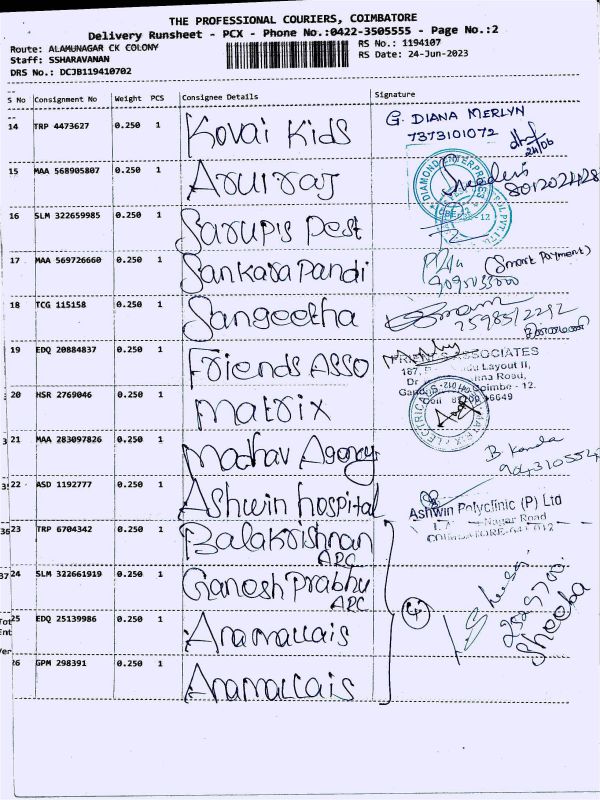 THE PROFESSIONAL COURIERS, COIMBATORE
Delivery Runsheet - PCX - Phone No.:0422-3505555 - Page No.:2
Route: ALAMUNAGAR CK COLONY
RS No.: 1194107
Staff: SSHARAVANAN
RS Date: 24-Jun-2023
DRS No.: DCJB119410702
S No Consignment No Weight PCS Consignee Details Signature
14 TRP 4473627 0.250 1 Kovai Kids
G. DIANA MERLYN
7373101072
24/06
15 MAA 568905807 0.250 1 Arulraj
DIAMOND ENTERPRISES
16 SLM 322659985 0.250 1 Sarupis Pest
17 MAA 569726660 0.250 1 Sankarapandi
(Smart Payment)
18 TCG 115158 0.250 1 Sangeetha
19 EDQ 20884837 0.250 1 Friends ASSO
ASSOCIATES
Layout II,
Road,
Coimbe - 12.
20 HSR 2769046 0.250 1 Matrix
MATRIX ELECTRICALS
21 MAA 283097826 0.250 1 Madhav Agency
B. Kamala
22 ASD 1192777 0.250 1 Ashwin hospital
Ashwin Polyclinic (P) Ltd
Nagar Road
COIMBATORE-641 012
23 TRP 6704342 0.250 1 Balakrishnan
APC
24 SLM 322661919 0.250 1 Ganesh Prabhu
APC
4
Sheeba
25 EDQ 25139986 0.250 1 Anamallais
26 GPM 298391 0.250 1 Anamallais